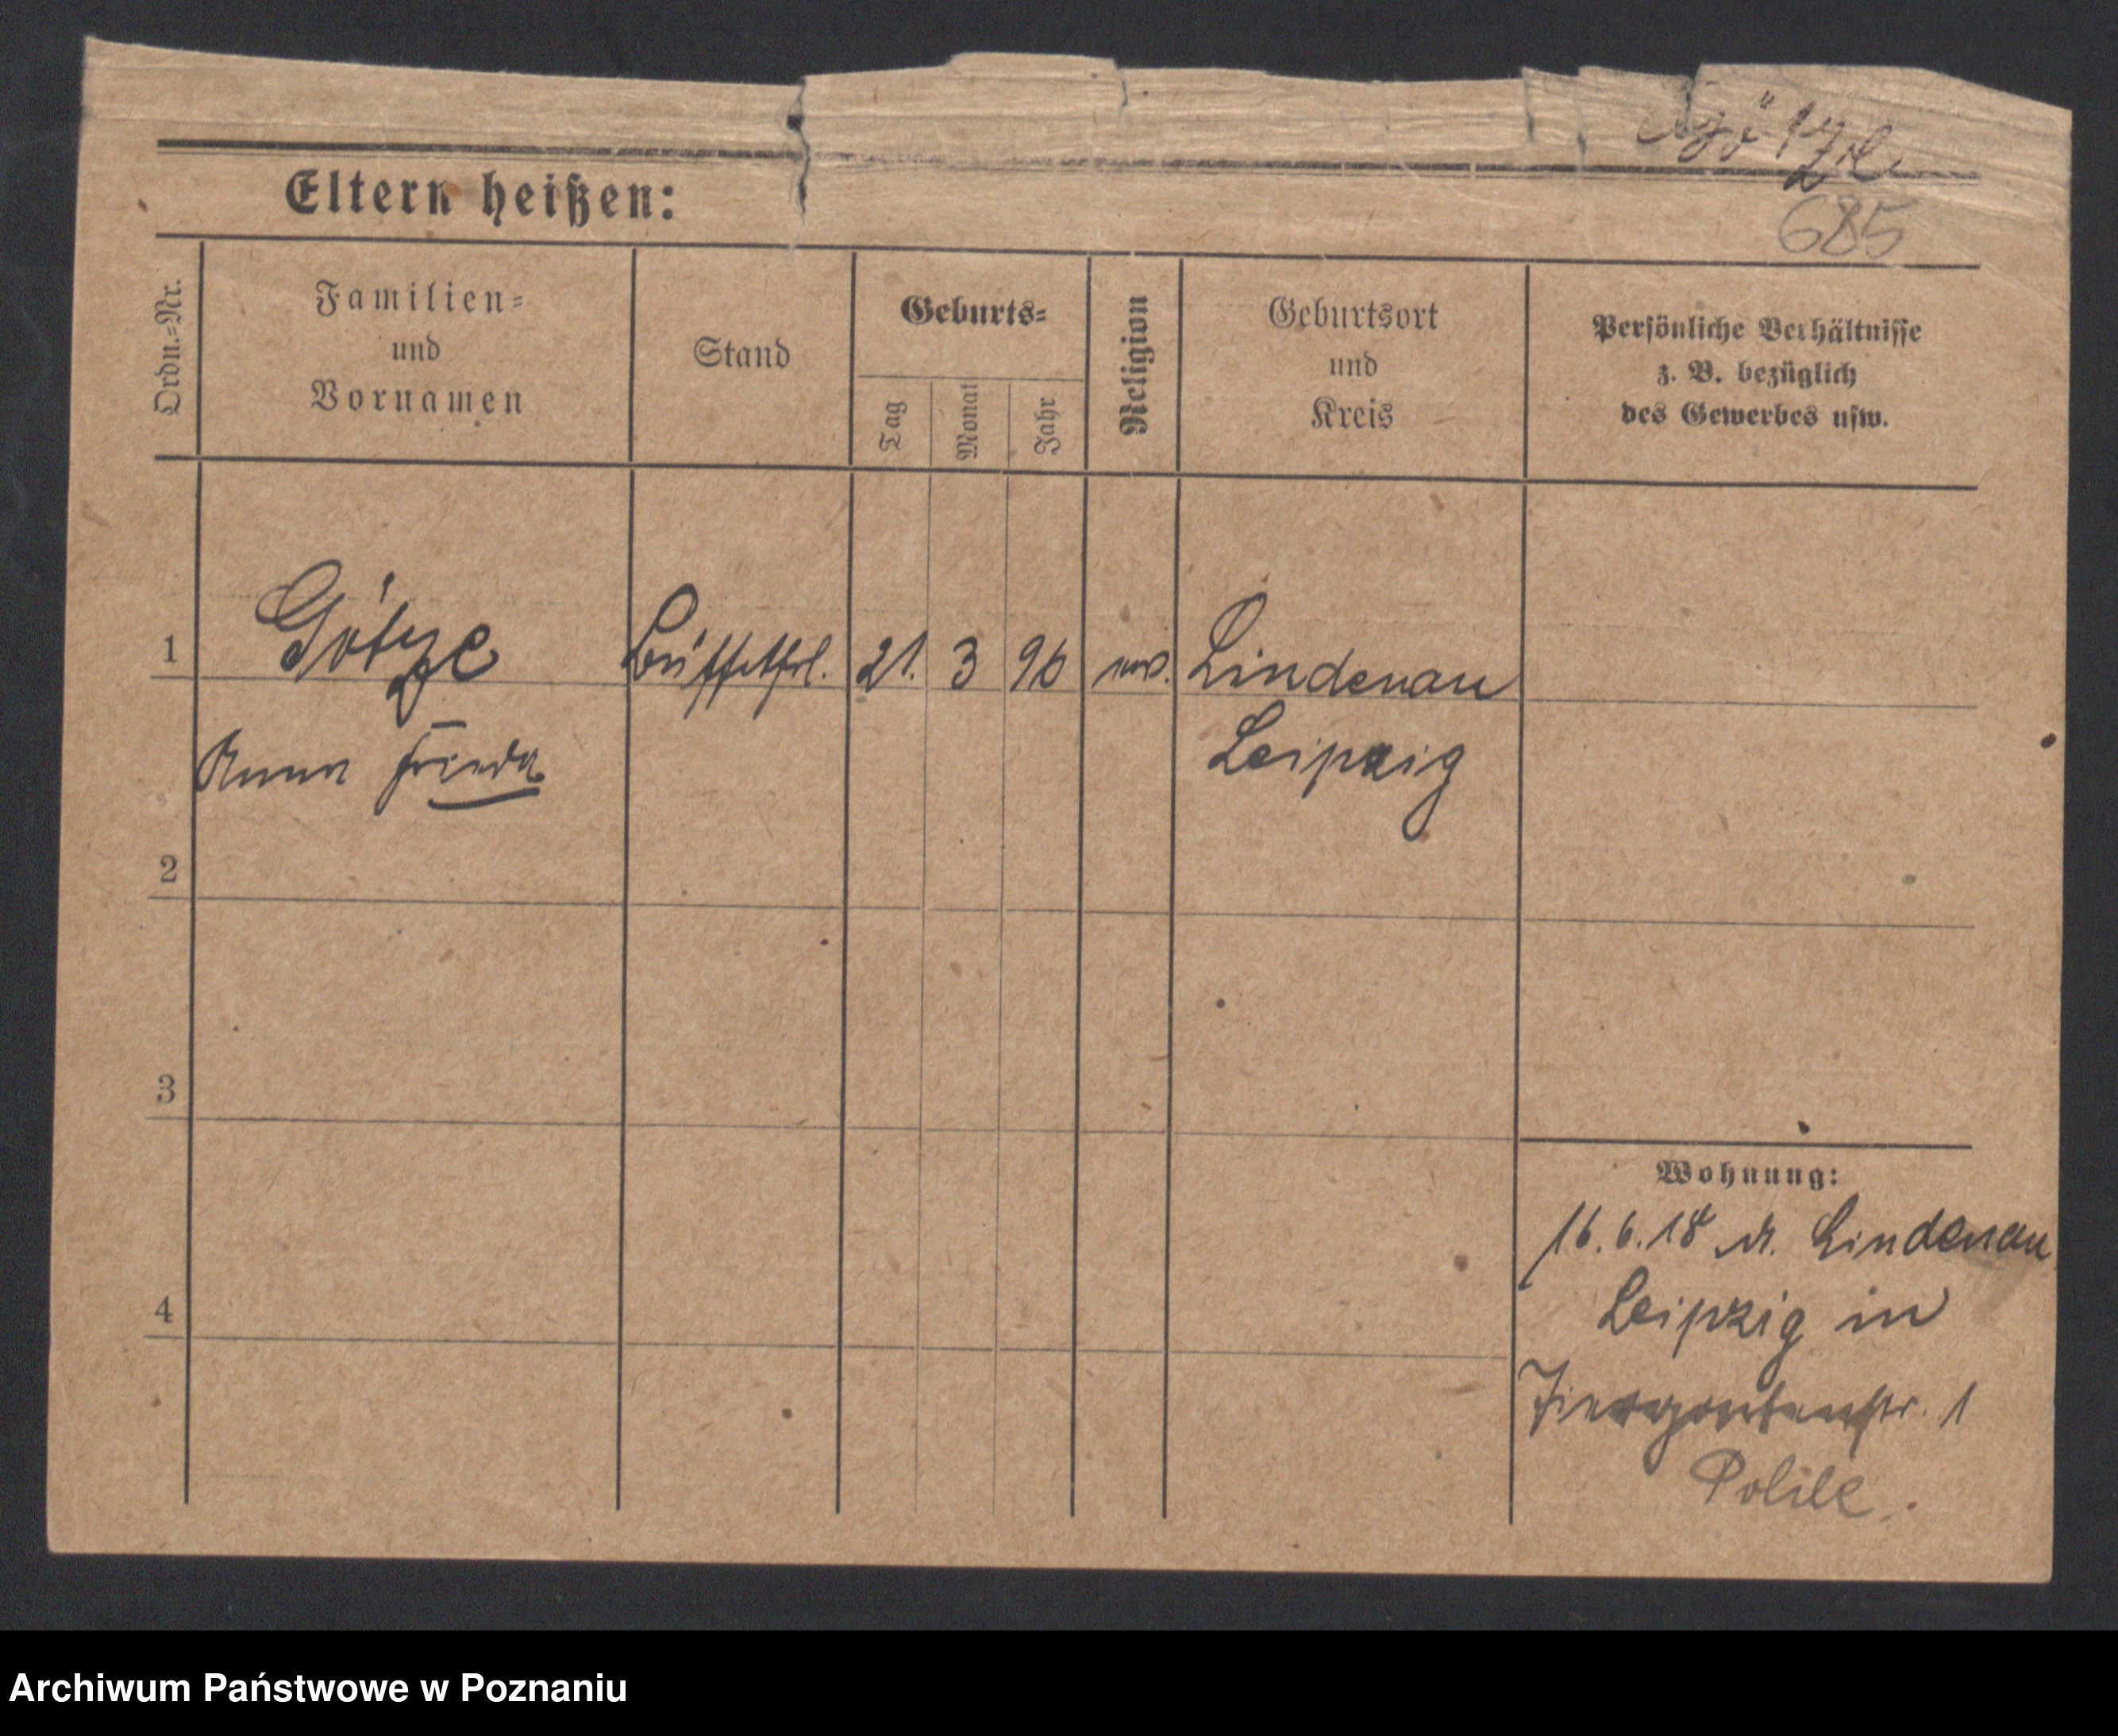 Götze
685
Eltern heißen:
Ordn.=Nr.
Familien=
und
Vornamen
Stand
Geburts=
Tag
Monat
Jahr
Religion
Geburtsort
und
Kreis
Persönliche Verhältnisse
z. B. bezüglich
des Gewerbes usw.
1 Götze Büffetfrl. 21. 3 96 Lindenau
Anna Frieda Leipzig
2
3
4
Wohnung:
16.6.18 Lindenau
Leipzig in
Tiergartenstr. 1
Archiwum Państwowe w Poznaniu